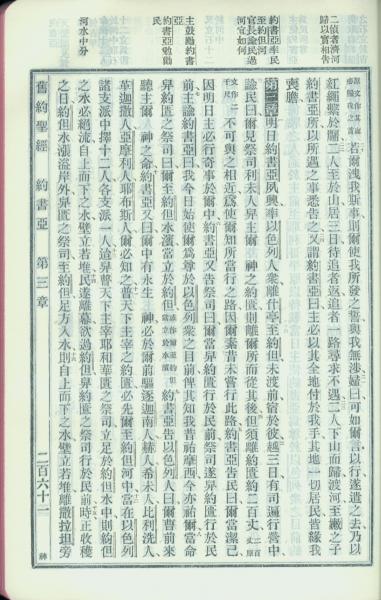 二偵者濟河歸以實相告
約書亞率民至約但河官長諭民過河宜如何
主鼓勵約書亞
約書亞勉勵民
河水中分
若爾洩我斯事則爾使我所發之誓與我無涉婦曰可如爾言以行遂遣之去乃以
紅繩繫於牖二人至於山居三日待追者返追者一路尋求不遇二人下山而歸渡河至嫩之子
約書亞所以所遇之事悉告之又謂約書亞曰主必以其全地付於我手其地一切居民皆緣我
喪膽
第三章 明日約書亞夙興率以色列人衆離什亭至約但未渡前宿於彼越三日有司遍行營中
諭民曰爾見祭司利未人舁主爾 神之約匱則離爾所而從其後但須離約匱約二百丈二百丈原
文作二千尺不可與之相近爲使爾知所當行之路因爾素昔未嘗行此路約書亞告民曰爾當潔己
因明日主必行奇事於爾中約書亞又告祭司曰爾當舁約匱行於民前祭司遂舁約匱行於民
前主諭約書亞曰我今日始使爾爲尊於以色列衆之目前俾其知我昔祐摩西今亦祐爾當命
舁約匱之祭司曰爾至約但水濱當立於約但或作爾至約但當立於水濱約書亞告以色列人曰爾曹前來
聽主爾 神之命約書亞又曰爾中有永生 神必於爾前驅逐迦南人赫人希未人比利洗人
革迦撒人亞摩利人耶布斯人爾必知之普天下主宰之約匱必先爾至約但河中當在以色列
諸支派中擇十二人各支派一人迨舁普天下主宰耶和華匱之祭司立足於約但水中則約但
之水必絕流自上而下之水壁立若堆民遂離幕欲過約但舁約匱之祭司行於民前時正收穫
之日約但水漲溢岸外舁匱之祭司至約但足方入水則自上而下之水壁立若堆離撒拉坦旁
舊約聖經 約書亞 第三章 二百六十一 神